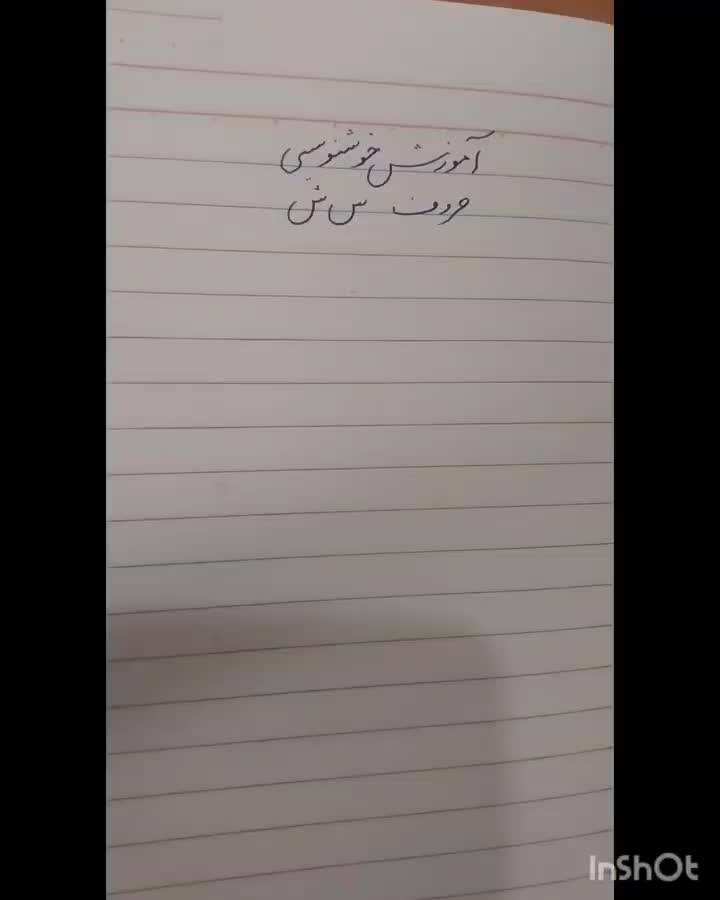 آموزش خوشنویسی
حروف س ش
InShOt